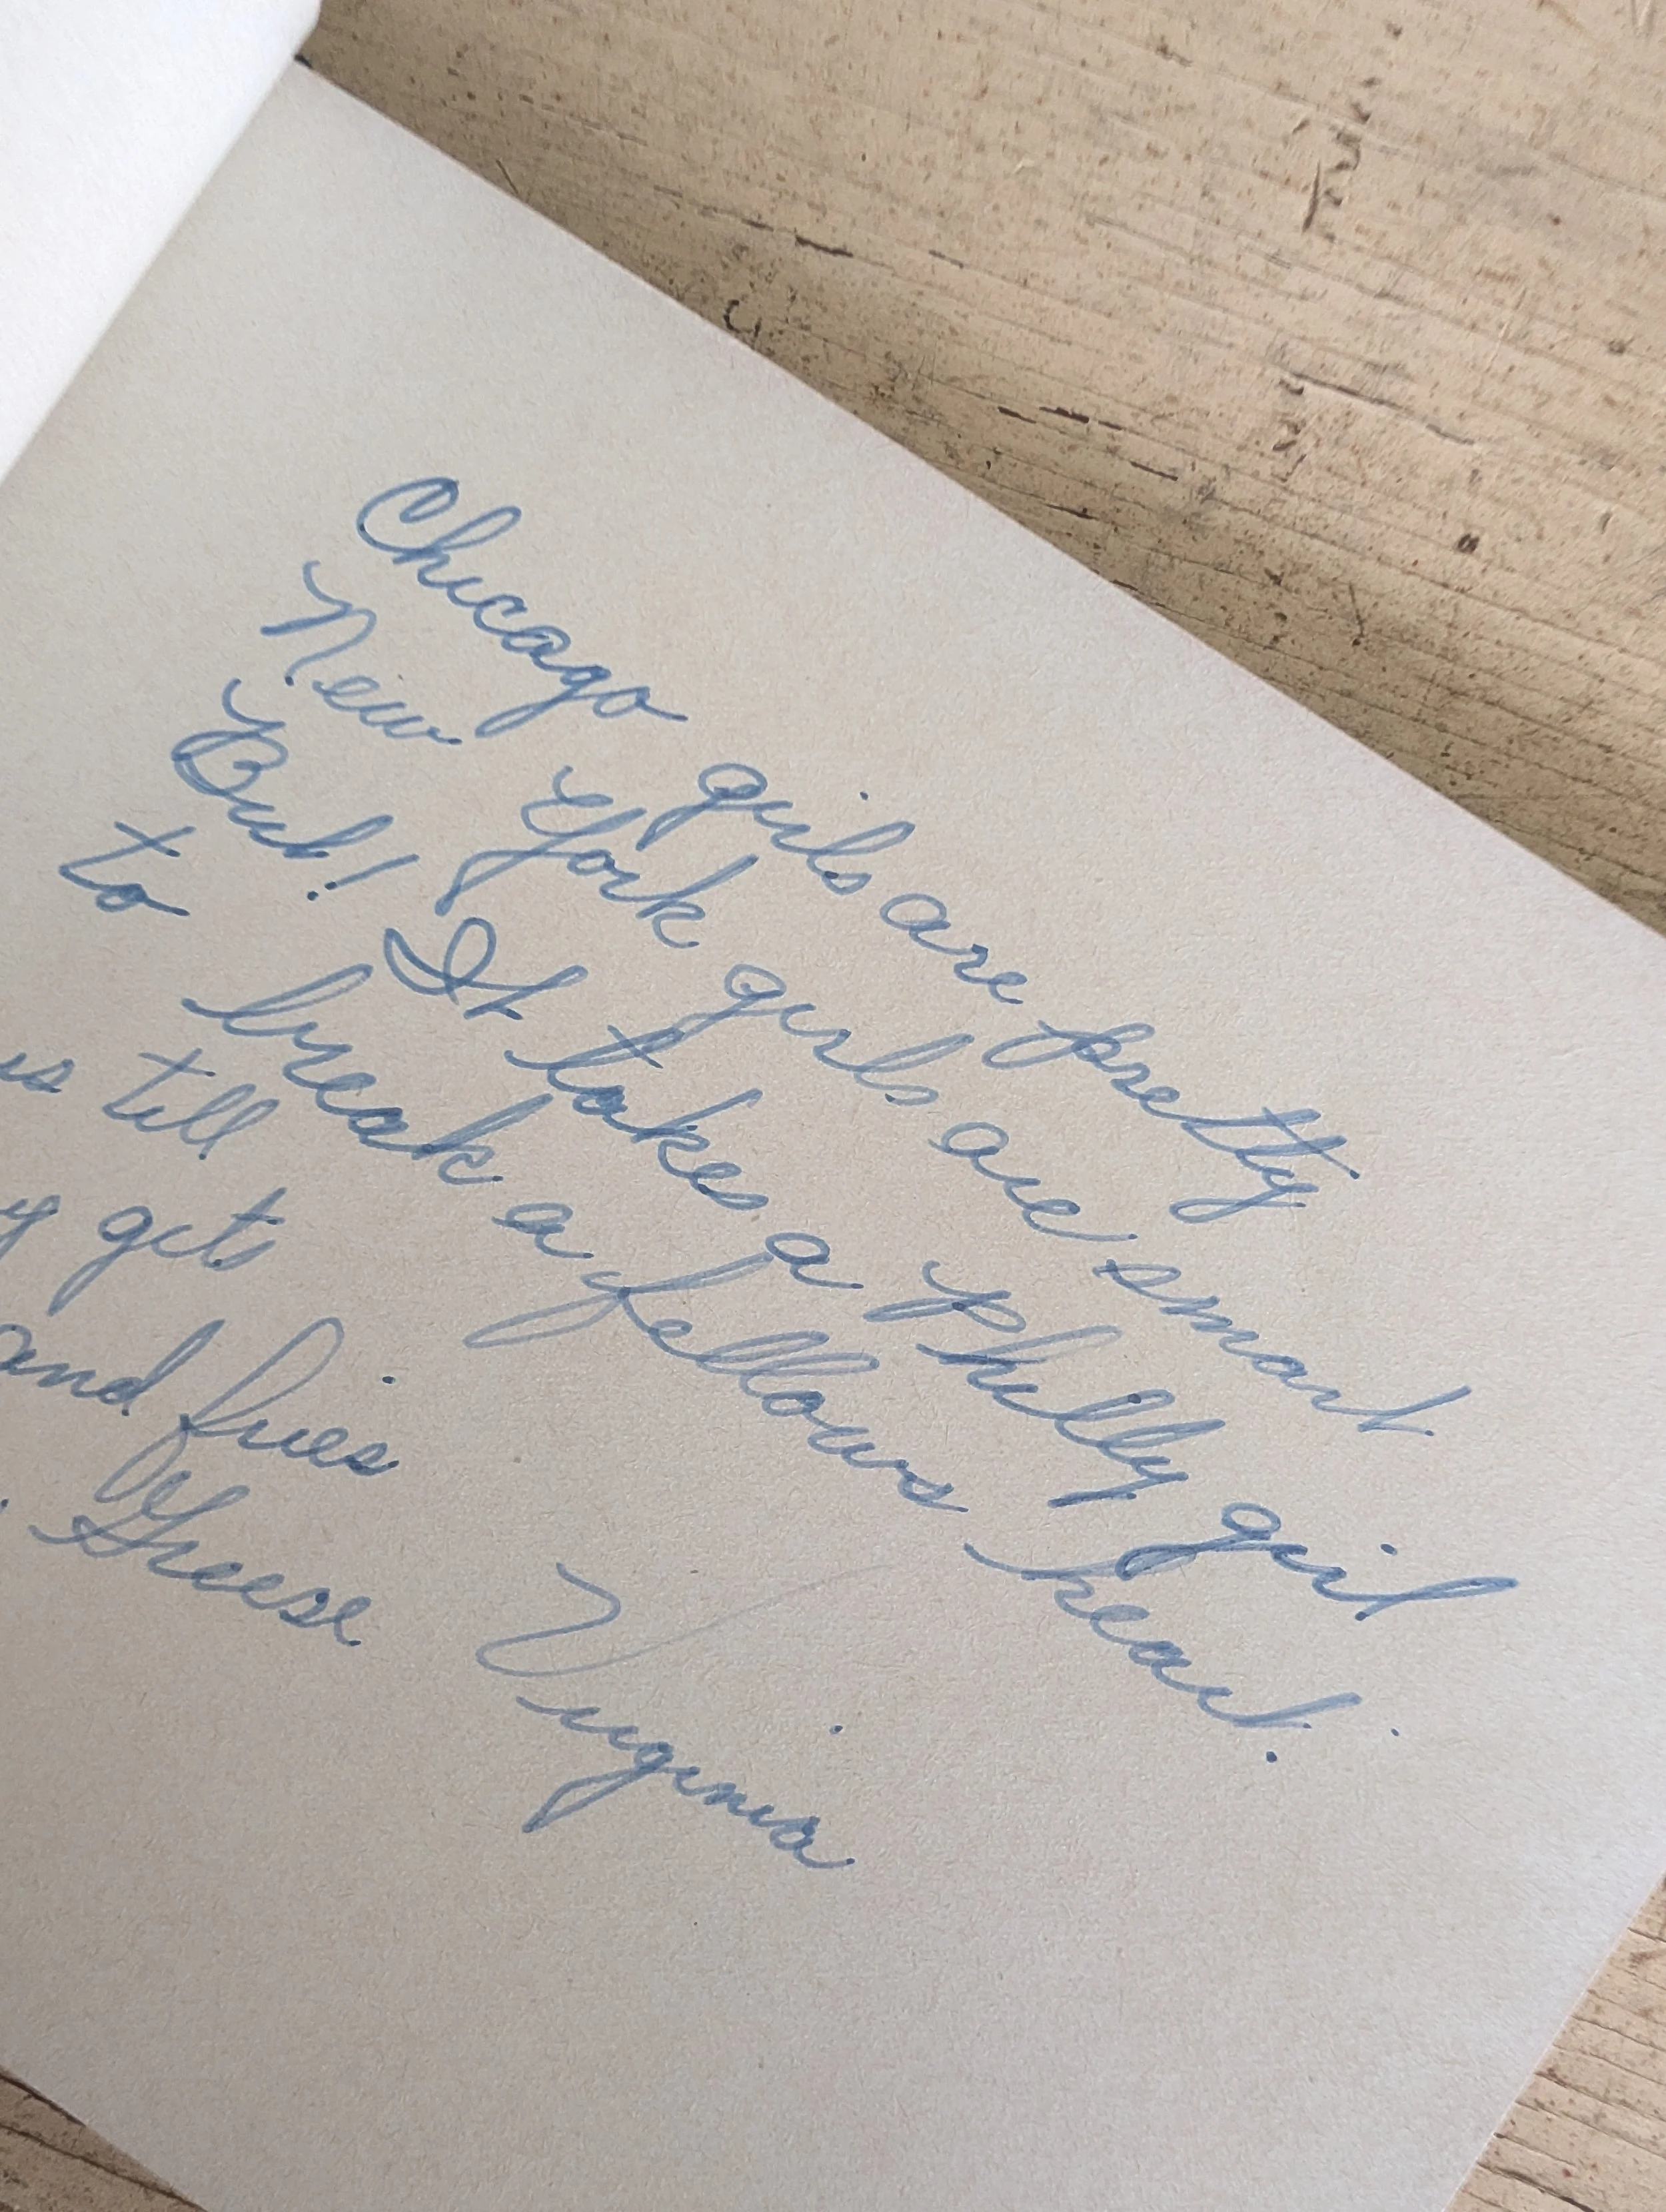 Chicago girls are pretty
New York girls are smart
But! It takes a Philly girl
to break a fellows heart.
Virginia
us till
gets
and fries
Greese